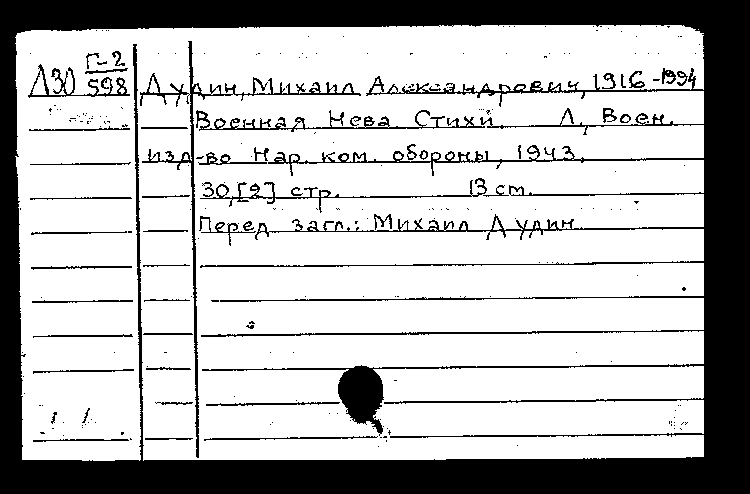 Л30 Г-2
598
Дудин, Михаил Александрович, 1916-1994
Военная Нева. Стихи. Л., Воен.
изд-во Нар. ком. обороны, 1943.
30,[2] стр. 13 см.
Перед загл.: Михаил Дудин